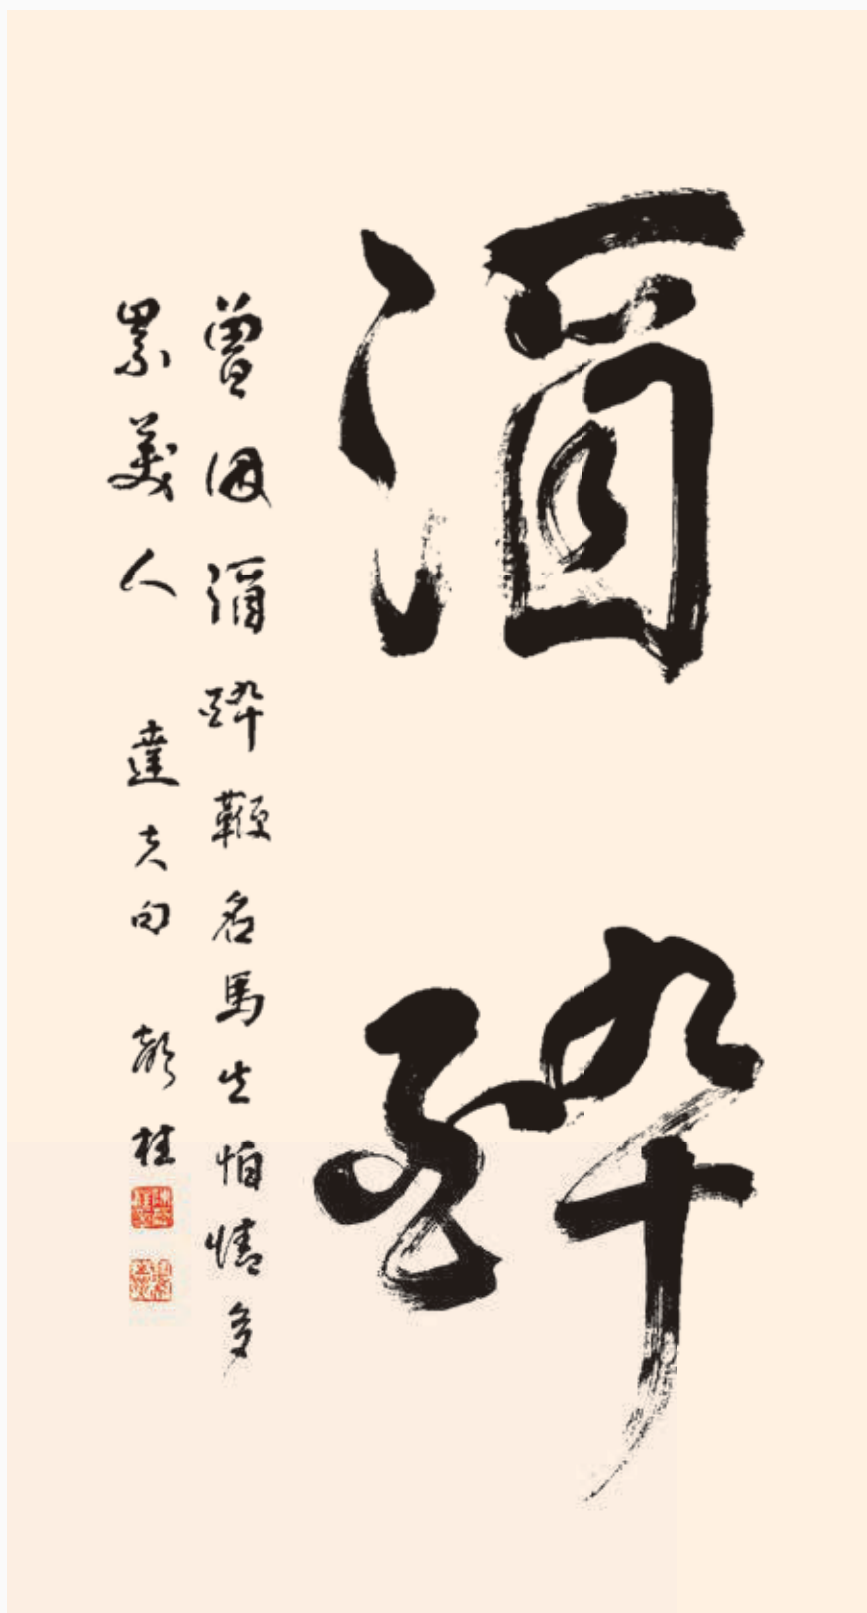 酒醉
曾因酒醉鞭名馬生怕情多
累美人 達夫句 彭桂